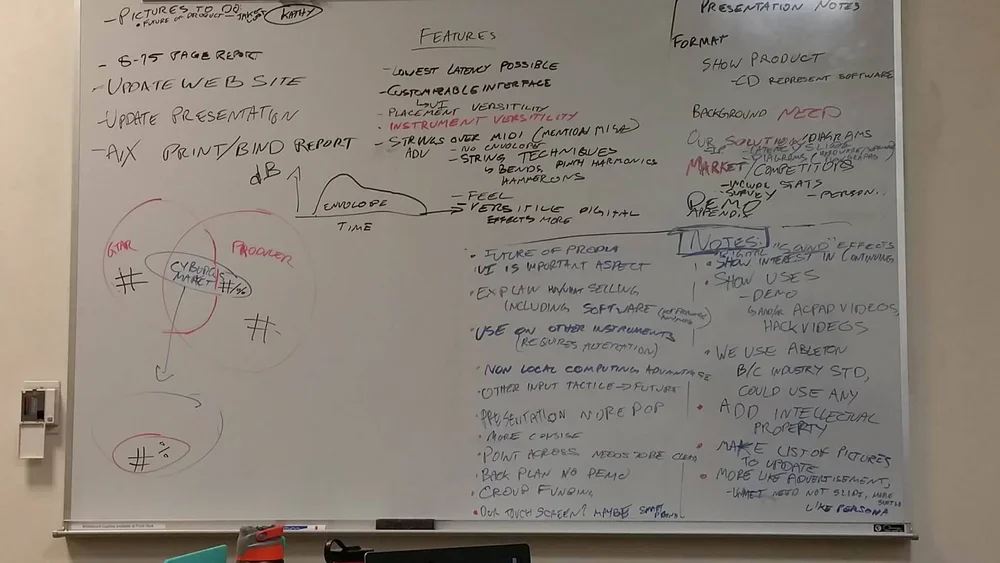 - PICTURES TO DO
• FUTURE OF PRODUCT - KATHY
- 8-75 PAGE REPORT
- UPDATE WEB SITE
- UPDATE PRESENTATION
- PRINT/BIND REPORT
dB
ENVOLOPE
TIME
GTAR
#
PRODUCER
MARKET
#
#
FEATURES
- LOWEST LATENCY POSSIBLE
- CUSTOMIZABLE INTERFACE
UI
- PLACEMENT VERSITILITY
- INSTRUMENT VERSITILITY
- STRINGS OVER MIDI (MENTION
ADV - NO ENVOLOPE
- STRING TECHNIQUES
BENDS, PINCH HARMONICS
HAMMERONS
- FEEL
- VERSITILE DIGITAL
EFFECTS MORE
PRESENTATION NOTES
FORMAT
SHOW PRODUCT
- CD REPRESENT SOFTWARE
BACKGROUND NEED
OUR SOLUTION/DIAGRAMS
MARKET/COMPETITORS
STATS
- SURVEY - PERSON...
DEMO
APPENDIX
• FUTURE OF
• UI IS IMPORTANT ASPECT
• EXPLAIN SELLING
INCLUDING SOFTWARE
• USE ON OTHER INSTRUMENTS
(REQUIRES ALTERATION)
• NON LOCAL COMPUTING ADVANTAGE
• OTHER INPUT TACTILE → FUTURE
• PRESENTATION MORE POP
• MORE CONSISE
• POINT ACROSS NEEDS TO BE CLEAR
• BACK PLAN NO DEMO
• GROUP FUNDING
• OUR TOUCH SCREEN? MAYBE
NOTES:
• DIGITAL "SOUND" EFFECTS
• SHOW INTEREST IN CONTINUING
• SHOW USES
- DEMO
VIDEOS
HACK VIDEOS
• WE USE ABLETON
B/C INDUSTRY STD,
COULD USE ANY
• ADD INTELLECTUAL
PROPERTY
• MAKE LIST OF PICTURES
TO UPDATE
• MORE LIKE ADVERTISEMENT,
NEED NOT SLIDE, MORE
LIKE PERSONA